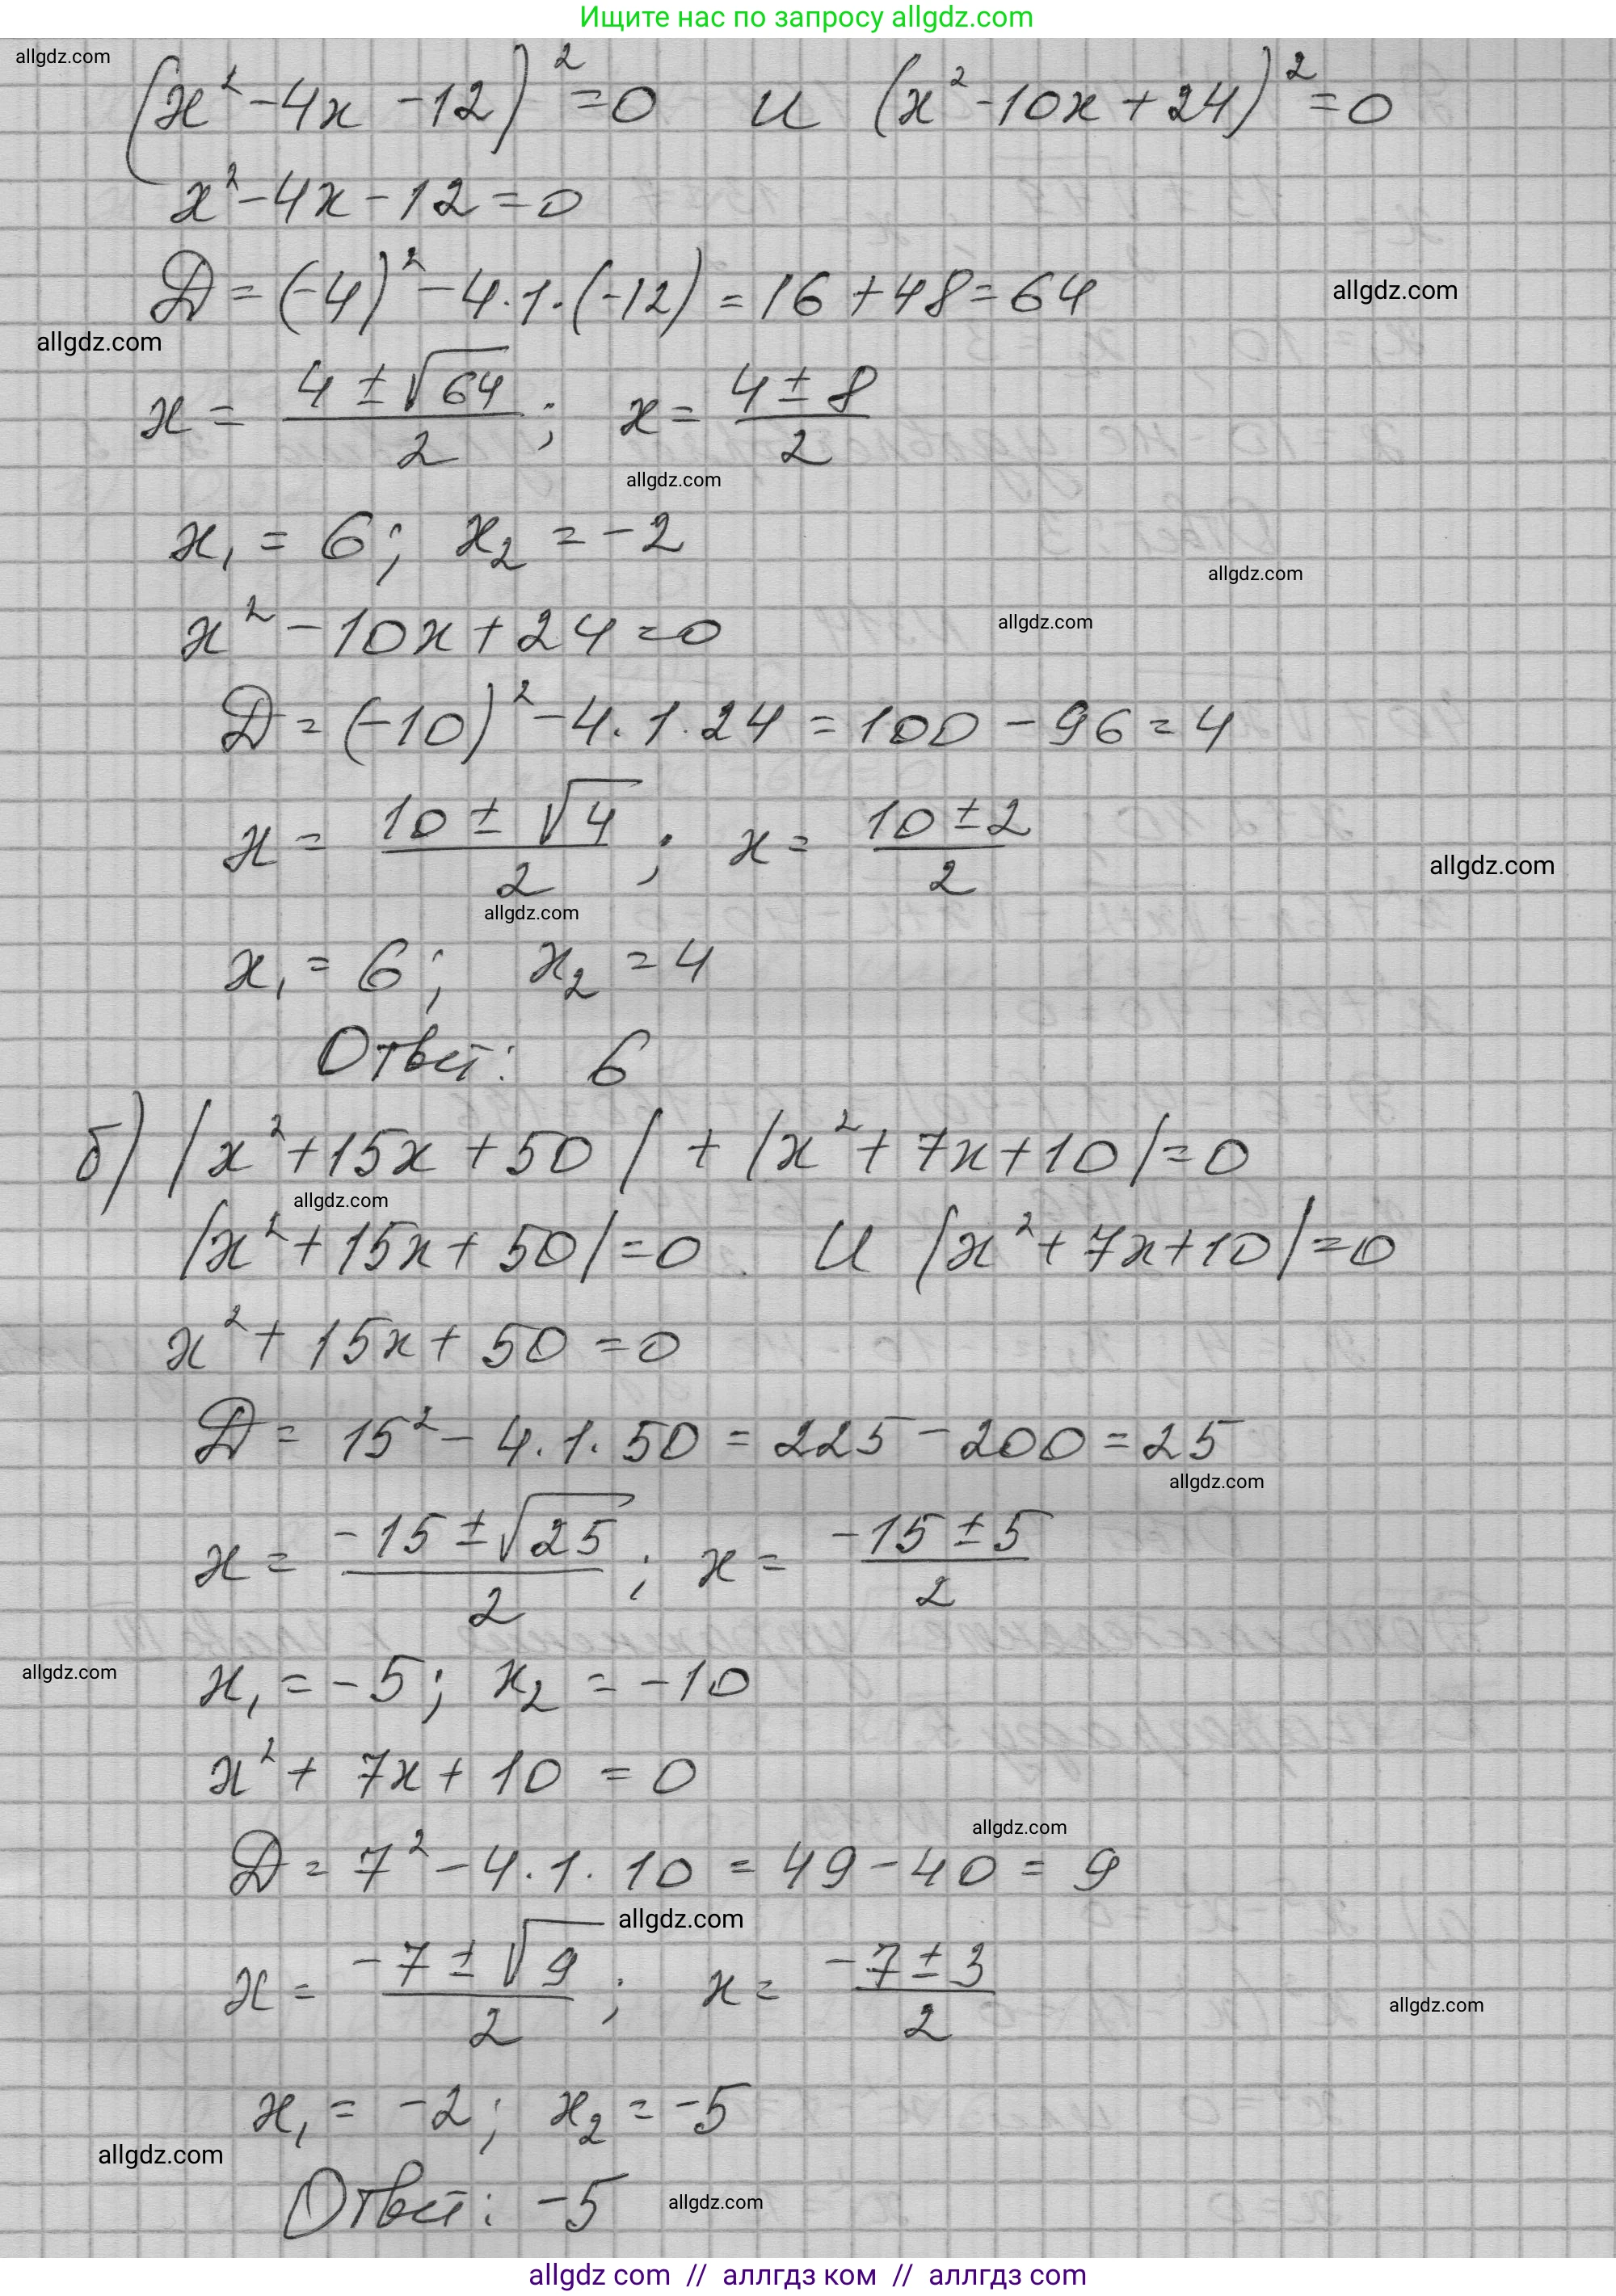 Ищите нас по запросу allgdz.com
allgdz.com
(x² - 4x - 12)² = 0 и (x² - 10x + 24)² = 0
x² - 4x - 12 = 0
D = (-4)² - 4·1·(-12) = 16 + 48 = 64
allgdz.com
allgdz.com
x = (4 ± √64)/2 ; x = (4 ± 8)/2
allgdz.com
x₁ = 6; x₂ = -2
allgdz.com
x² - 10x + 24 = 0
allgdz.com
D = (-10)² - 4·1·24 = 100 - 96 = 4
x = (10 ± √4)/2 ; x = (10 ± 2)/2
allgdz.com
allgdz.com
x₁ = 6; x₂ = 4
Ответ: 6
б) |x² + 15x + 50| + |x² + 7x + 10| = 0
allgdz.com
|x² + 15x + 50| = 0 и |x² + 7x + 10| = 0
x² + 15x + 50 = 0
D = 15² - 4·1·50 = 225 - 200 = 25
allgdz.com
x = (-15 ± √25)/2 ; x = (-15 ± 5)/2
allgdz.com
x₁ = -5; x₂ = -10
x² + 7x + 10 = 0
allgdz.com
D = 7² - 4·1·10 = 49 - 40 = 9
allgdz.com
x = (-7 ± √9)/2 ; x = (-7 ± 3)/2
allgdz.com
x₁ = -2; x₂ = -5
allgdz.com
Ответ: -5
allgdz.com
allgdz com // аллгдз ком // аллгдз com